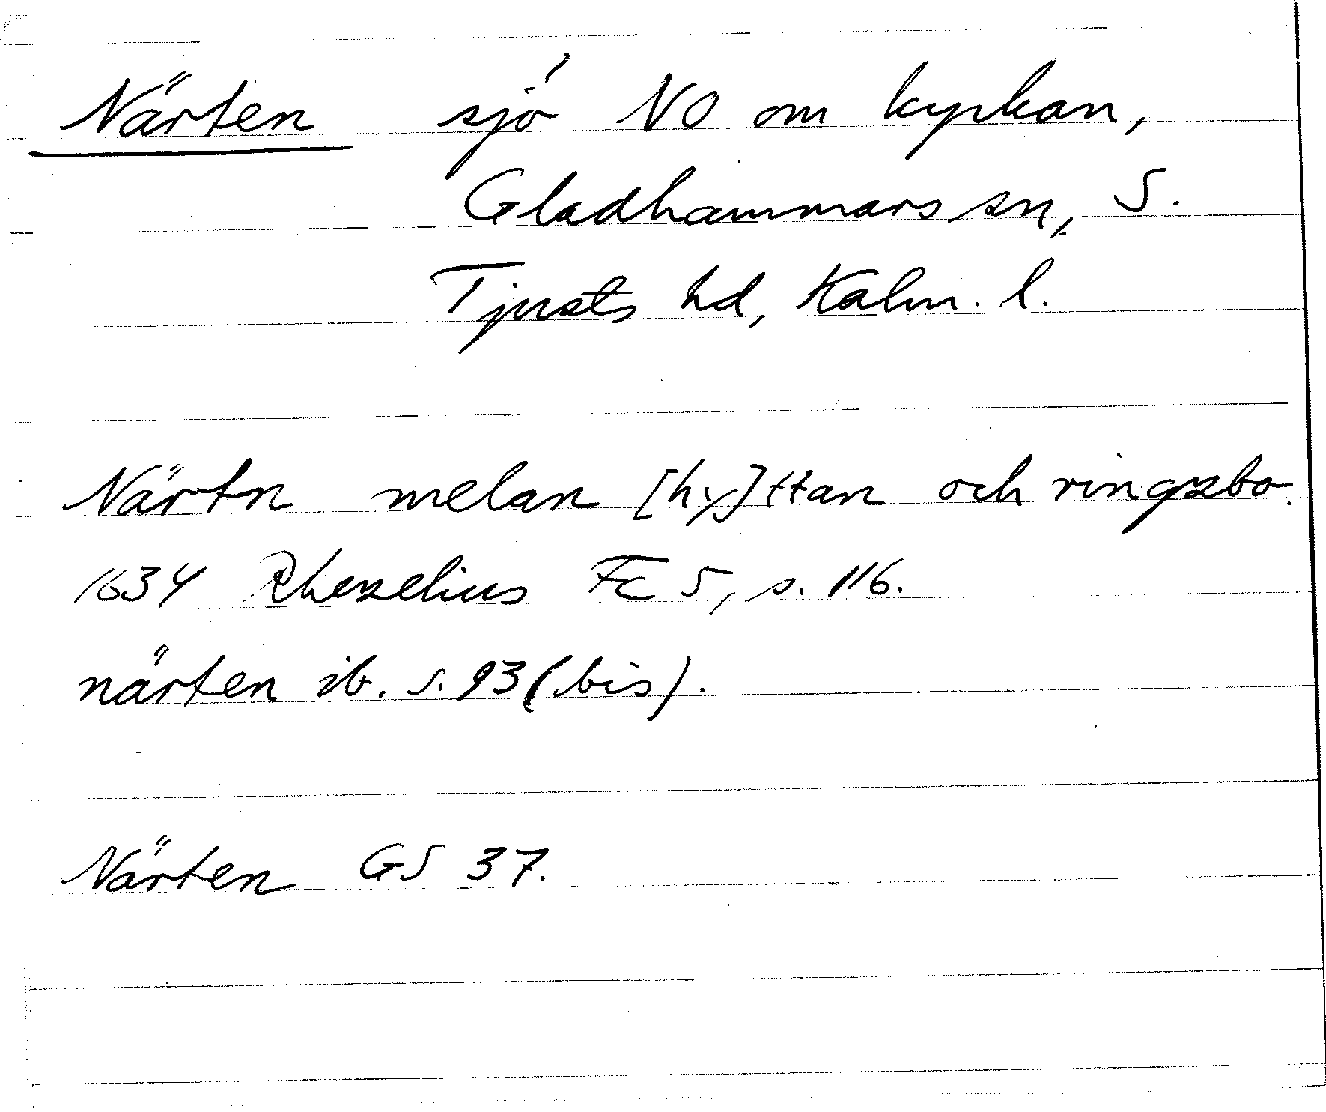 Närten sjö NO om kyrkan,
Gladhammars sn, S.
Tjusts hd, Kalm. l.
Närtn melan [hy]ttan och ringzbo.
1634 Rhezelius Fc 5, s. 116.
närten ib. s. 93 (bis).
Närten GS 37.